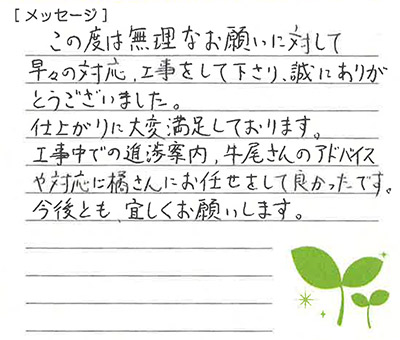 [メッセージ]
この度は無理なお願いに対して
早々の対応,工事をして下さり、誠にありが
とうございました。
仕上がりに大変満足しております。
工事中での進渉案内,牛尾さんのアドバイス
や対応に橘さんにお任せをして良かったです。
今後とも、宜しくお願いします。